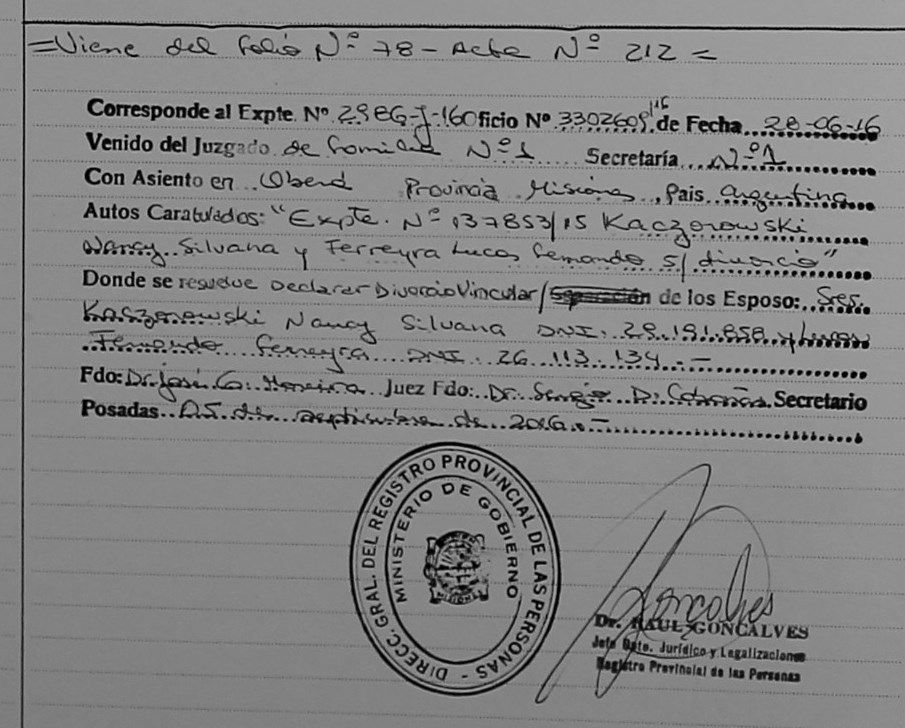 =Viene del Folio Nº 78 - Acta Nº 212 =
Corresponde al Expte. Nº 2986-J-16 Oficio Nº 3302609/16 de Fecha 28-06-16
Venido del Juzgado de Familia Nº1 Secretaría Nº1
Con Asiento en Oberá Provincia Misiones, Pais Argentina
Autos Caratulados: "Expte. Nº 137853/15 Kaczorowski
Nancy Silvana y Ferreyra Lucas Fernando s/ divorcio"
Donde se resuelve Declarar Divorcio Vincular/ de los Esposo: Sres.
Kaczorowski Nancy Silvana DNI: 29.191.858 y Lucas
Fernando Ferreyra DNI. 26.113.134.-
Fdo: Dr. José G. Moreira Juez Fdo: Dr. Sergio D. Secretario
Posadas 05 de septiembre de 2016.-
DIRECC. GRAL. DEL REGISTRO PROVINCIAL DE LAS PERSONAS -
MINISTERIO DE GOBIERNO
MISIONES
Goncalves
Dr. RAUL GONCALVES
Jefe Dpto. Jurídico y Legalizaciones
Registro Provincial de las Personas